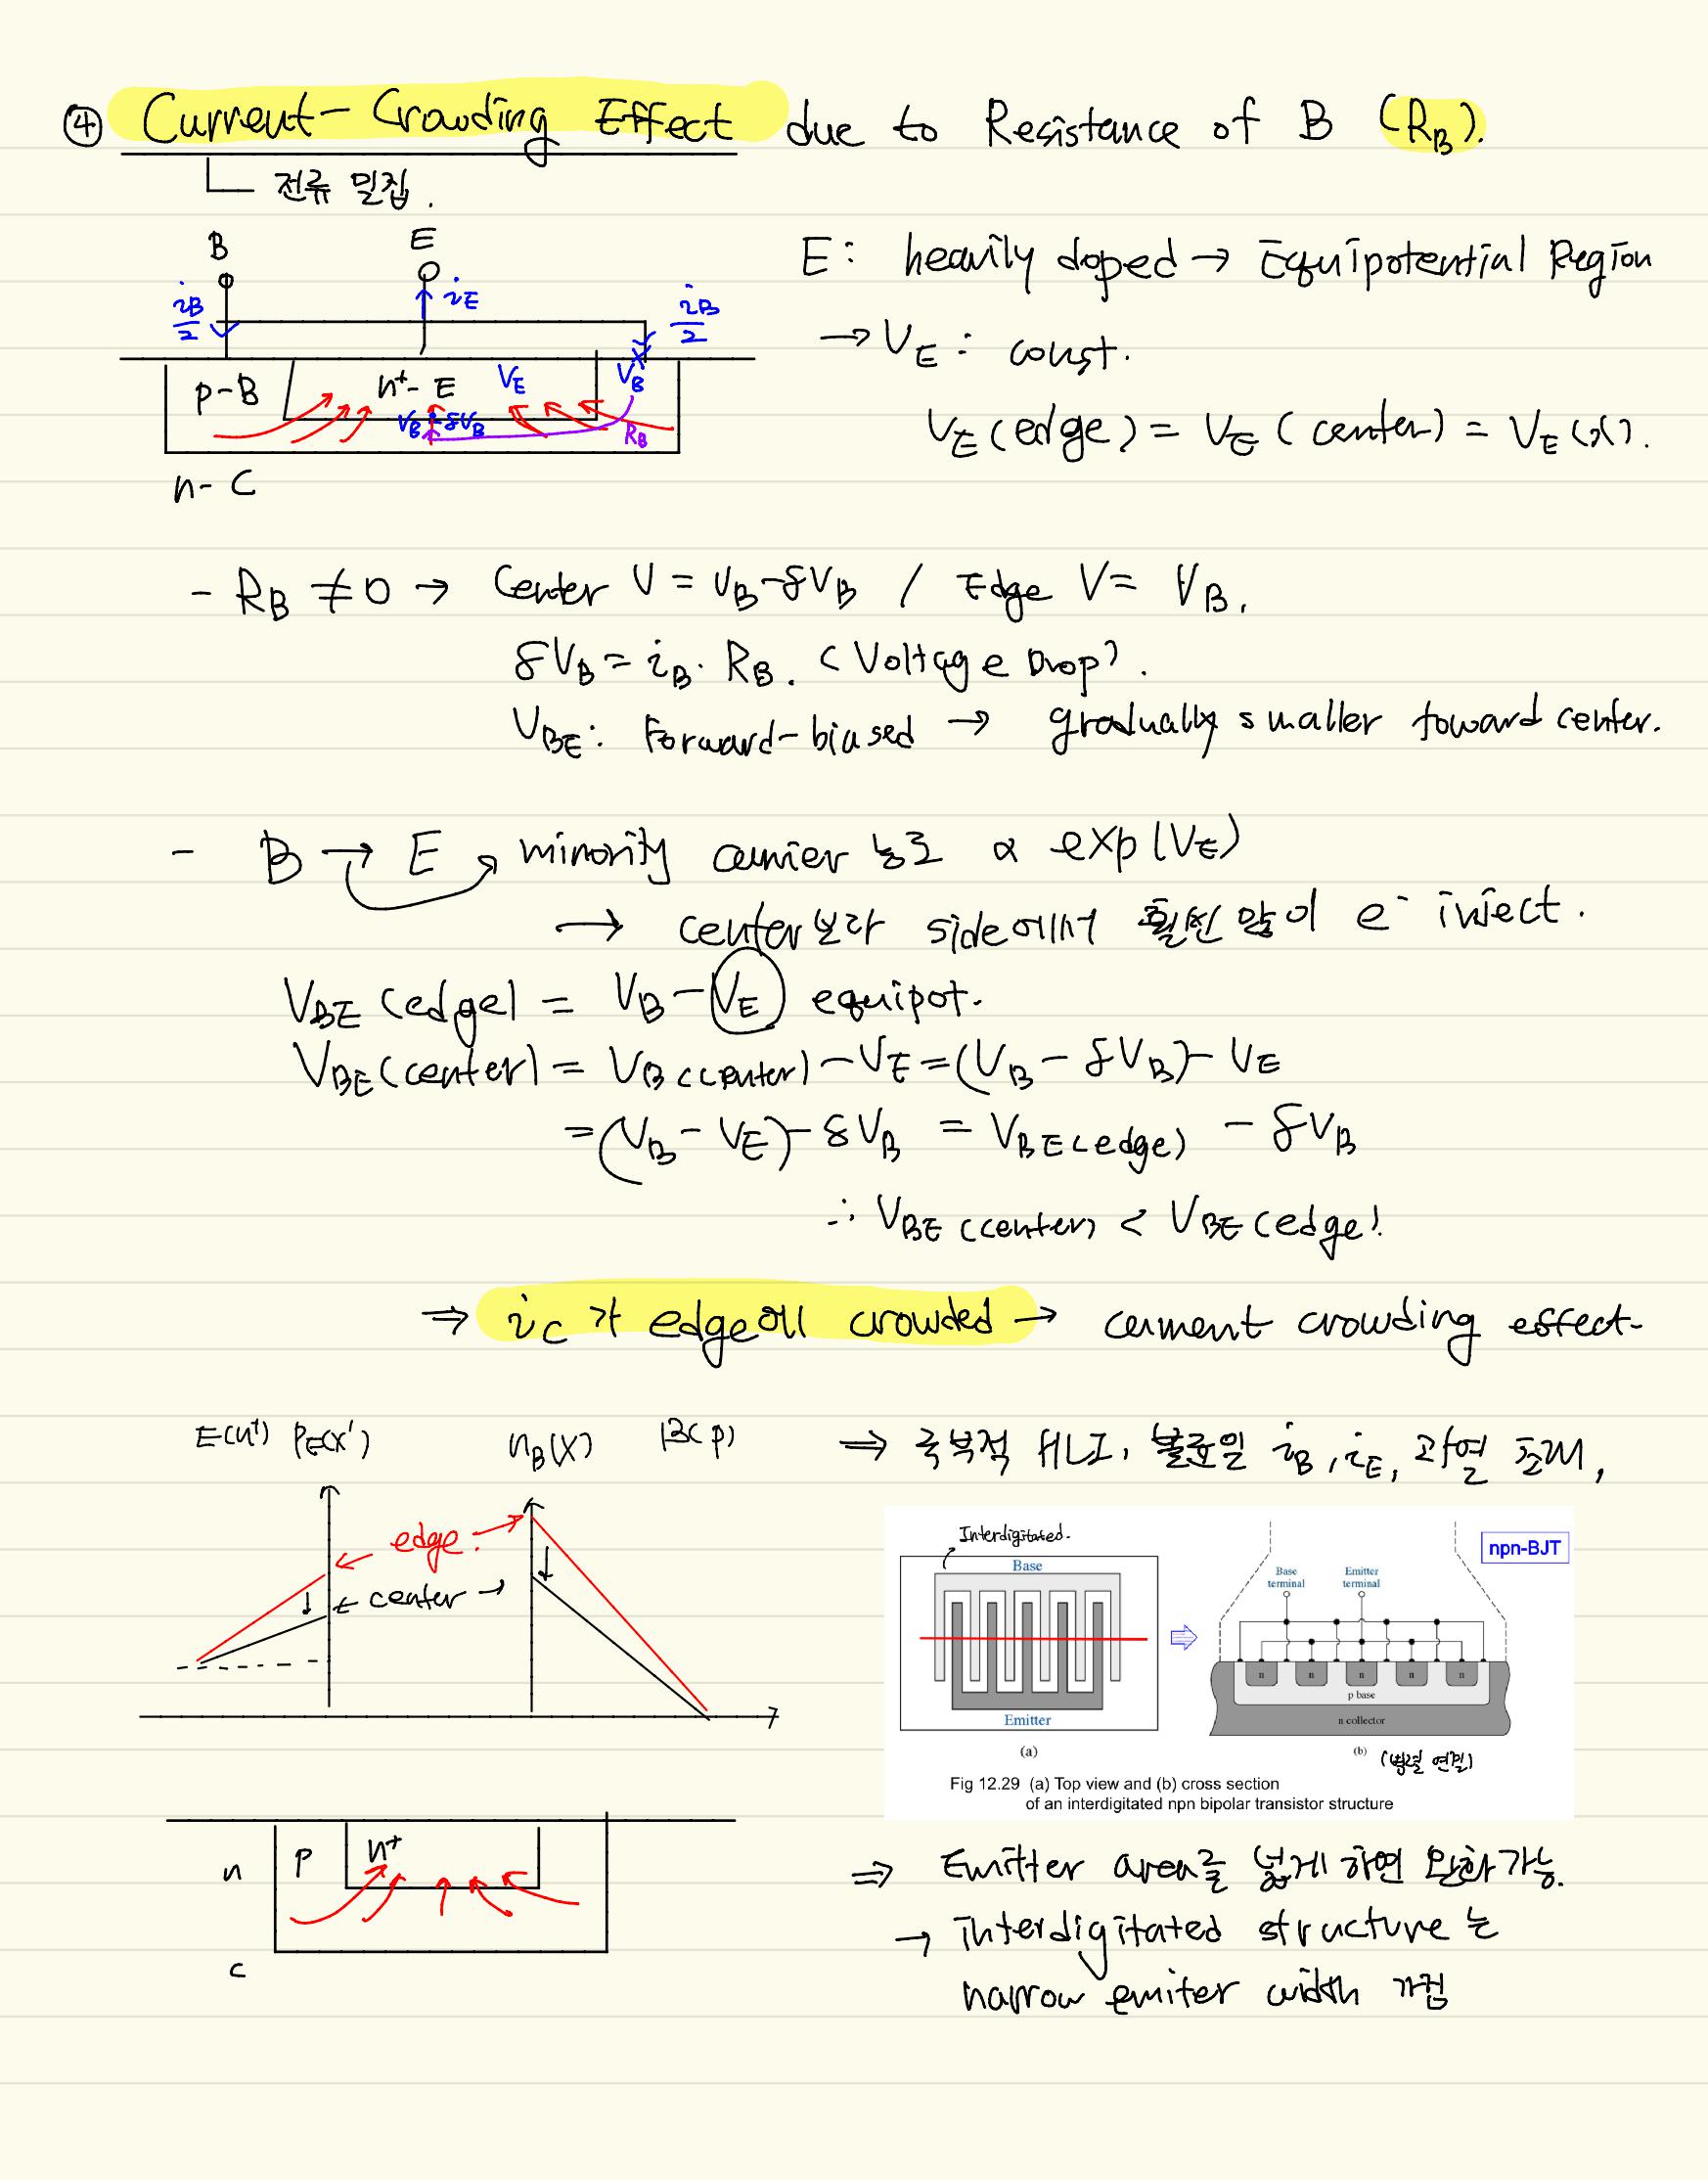 ④ Current-Crowding Effect due to Resistance of B (RB).
전류 밀집.
B E
iB/2 iE iB/2
p-B n+-E VE VB
VB-δVB RB
n-C
E: heavily doped → Equipotential Region
→ VE : const.
VE(edge) = VE(center) = VE(x).
- RB ≠ 0 → Center V = VB-δVB / Edge V = VB.
δVB = iB · RB. (Voltage Drop).
VBE: Forward-biased → gradually smaller toward center.
- B → E minority carrier 농도 ∝ exp(VE)
→ center보다 side에서 훨씬 많이 e- inject.
VBE(edge) = VB-VE equipot.
VBE(center) = VB(center) - VE = (VB - δVB) - VE
= (VB - VE) - δVB = VBE(edge) - δVB
∴ VBE(center) < VBE(edge)
⇒ iC가 edge에 crowded → current crowding effect.
E(n+) PE(x') nB(x) B(p)
edge
center
⇒ 국부적 HLI, 불균일 iB, iE, 과열 초래,
Interdigitated.
Base
Emitter
(a)
npn-BJT
Base terminal
Emitter terminal
n n n n n
p base
n collector
(b) (병렬 연결)
Fig 12.29 (a) Top view and (b) cross section
of an interdigitated npn bipolar transistor structure
p n+
n
c
⇒ Emitter area를 넓게 하면 완화 가능.
→ interdigitated structure는
narrow emiter width 가짐